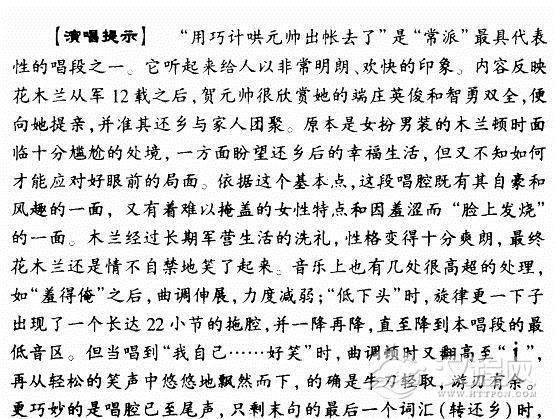 【演唱提示】 “用巧计哄元帅出帐去了”是“常派”最具代表
性的唱段之一。它听起来给人以非常明朗、欢快的印象。内容反映
花木兰从军12载之后，贺元帅很欣赏她的端庄英俊和智勇双全，便
向她提亲，并准其还乡与家人团聚。原本是女扮男装的木兰顿时面
临十分尴尬的处境，一方面盼望还乡后的幸福生活，但又不知如何
才能应对好眼前的局面。依据这个基本点，这段唱腔既有其自豪和
风趣的一面，又有着难以掩盖的女性特点和因羞涩而“脸上发烧”
的一面。木兰经过长期军营生活的洗礼，性格变得十分爽朗，最终
花木兰还是情不自禁地笑了起来。音乐上也有几处很高超的处理，
如“羞得俺”之后，曲调伸展，力度减弱；“低下头”时，旋律更一下子
出现了一个长达22小节的拖腔，并一降再降，直至降到本唱段的最
低音区。但当唱到“我自己……好笑”时，曲调顿时又翻高至“i”，
再从轻松的笑声中悠悠地飘然而下，的确是牛刀轻取，游刃有余。
更巧妙的是唱腔已至尾声，只剩末句的最后一个词汇（转还乡）时，